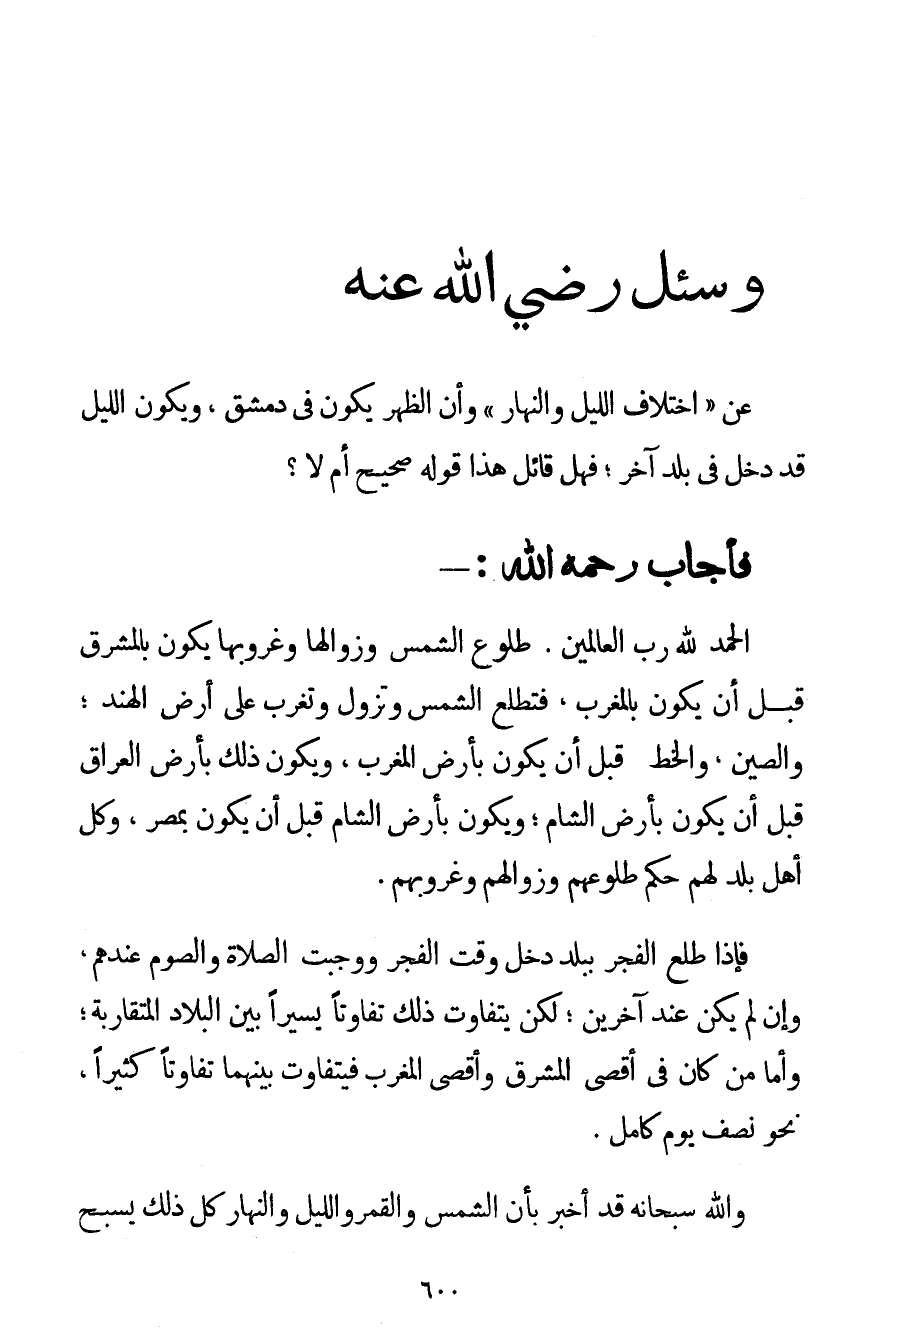 وسئل رضي الله عنه
عن « اختلاف الليل والنهار » وأن الظهر يكون فى دمشق ، ويكون الليل
قد دخل فى بلد آخر ؛ فهل قائل هذا قوله صحيح أم لا ؟
فأجاب رحمه الله : —
الحمد لله رب العالمين . طلوع الشمس وزوالها وغروبها يكون بالمشرق
قبـل أن يكون بالمغرب ، فتطلع الشمس وتزول وتغرب على أرض الهند ؛
والصين ، والخط قبل أن يكون بأرض المغرب ، ويكون ذلك بأرض العراق
قبل أن يكون بأرض الشام ؛ ويكون بأرض الشام قبل أن يكون بمصر ، وكل
أهل بلد لهم حكم طلوعهم وزوالهم وغروبهم .
فإذا طلع الفجر ببلد دخل وقت الفجر ووجبت الصلاة والصوم عندهم ،
وإن لم يكن عند آخرين ؛ لكن يتفاوت ذلك تفاوتاً يسيراً بين البلاد المتقاربة ؛
وأما من كان فى أقصى المشرق وأقصى المغرب فيتفاوت بينهما تفاوتاً كثيراً ،
نحو نصف يوم كامل .
والله سبحانه قد أخبر بأن الشمس والقمر والليل والنهار كل ذلك يسبح
٦٠٠